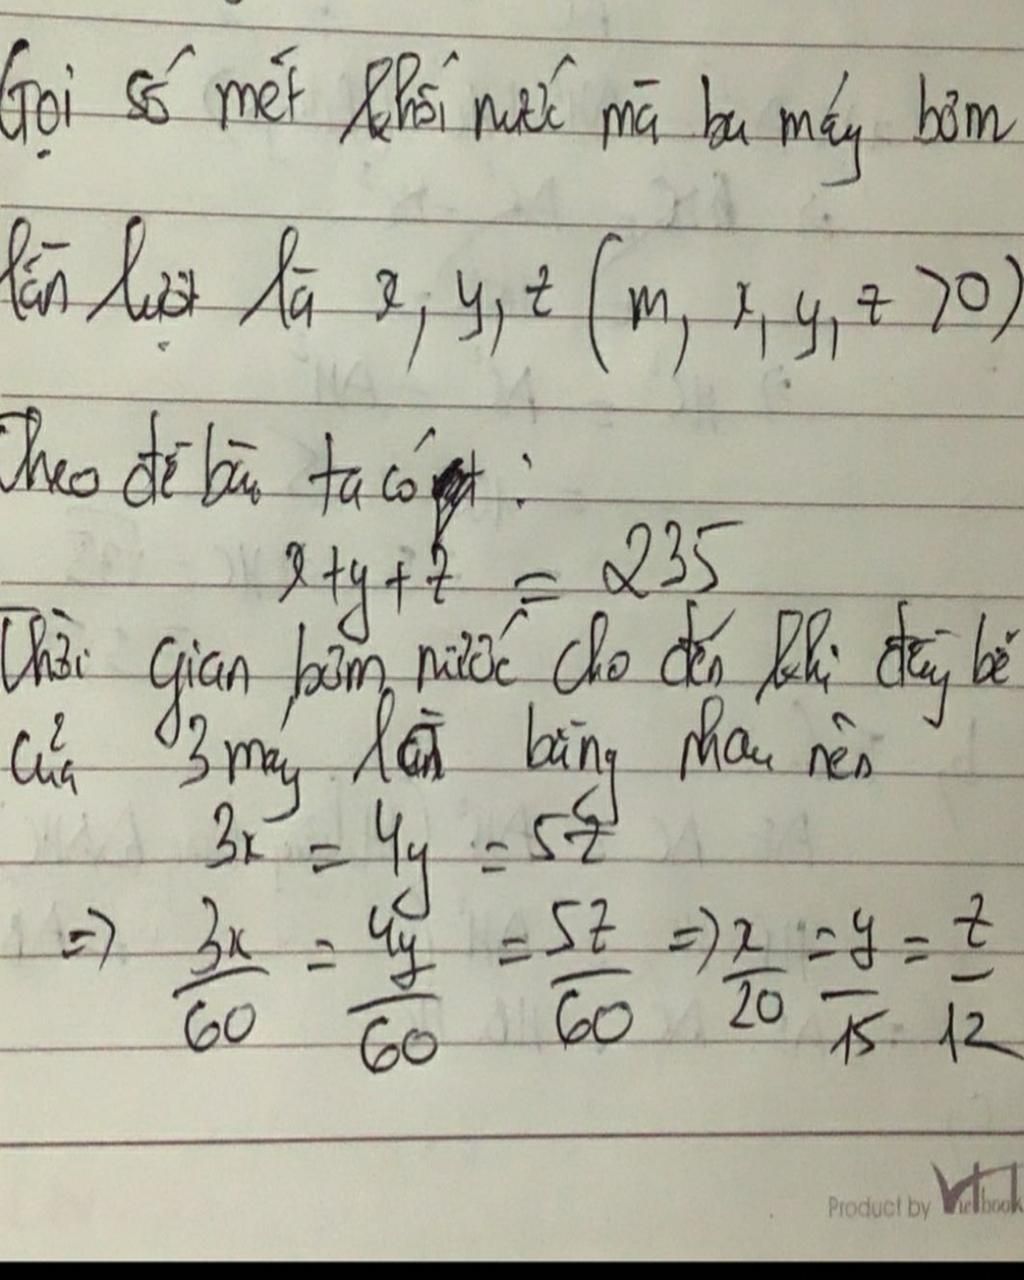 Gọi số mét khối nước mà ba máy bơm
lần lượt là x, y, z (m, x, y, z >0)
Theo đề bài ta có :
x+y+z = 235
Thời gian bơm nước cho đến khi đầy bể
của 3 máy bằng nhau nên
3x = 4y = 5z
=> 3x/60 = 4y/60 = 5z/60 => x/20 = y/15 = z/12
Product by Vietbook